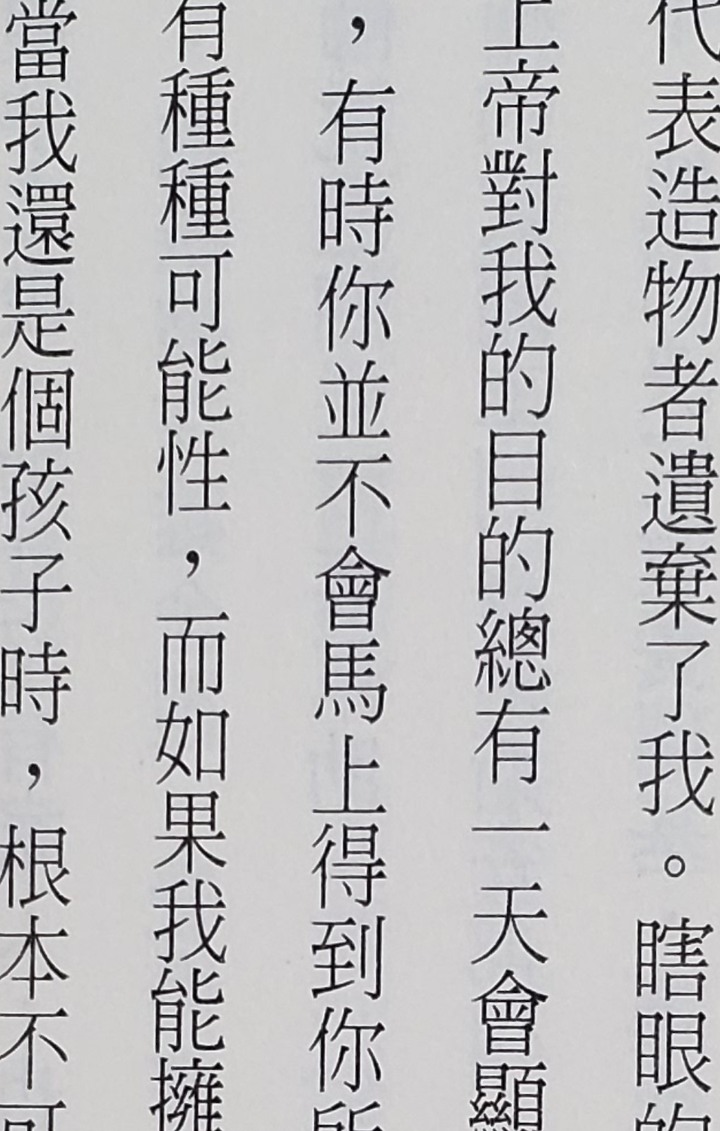 代表造物者遺棄了我。瞎眼的
上帝對我的目的總有一天會顯
，有時你並不會馬上得到你所
有種種可能性，而如果我能擁
當我還是個孩子時，根本不可